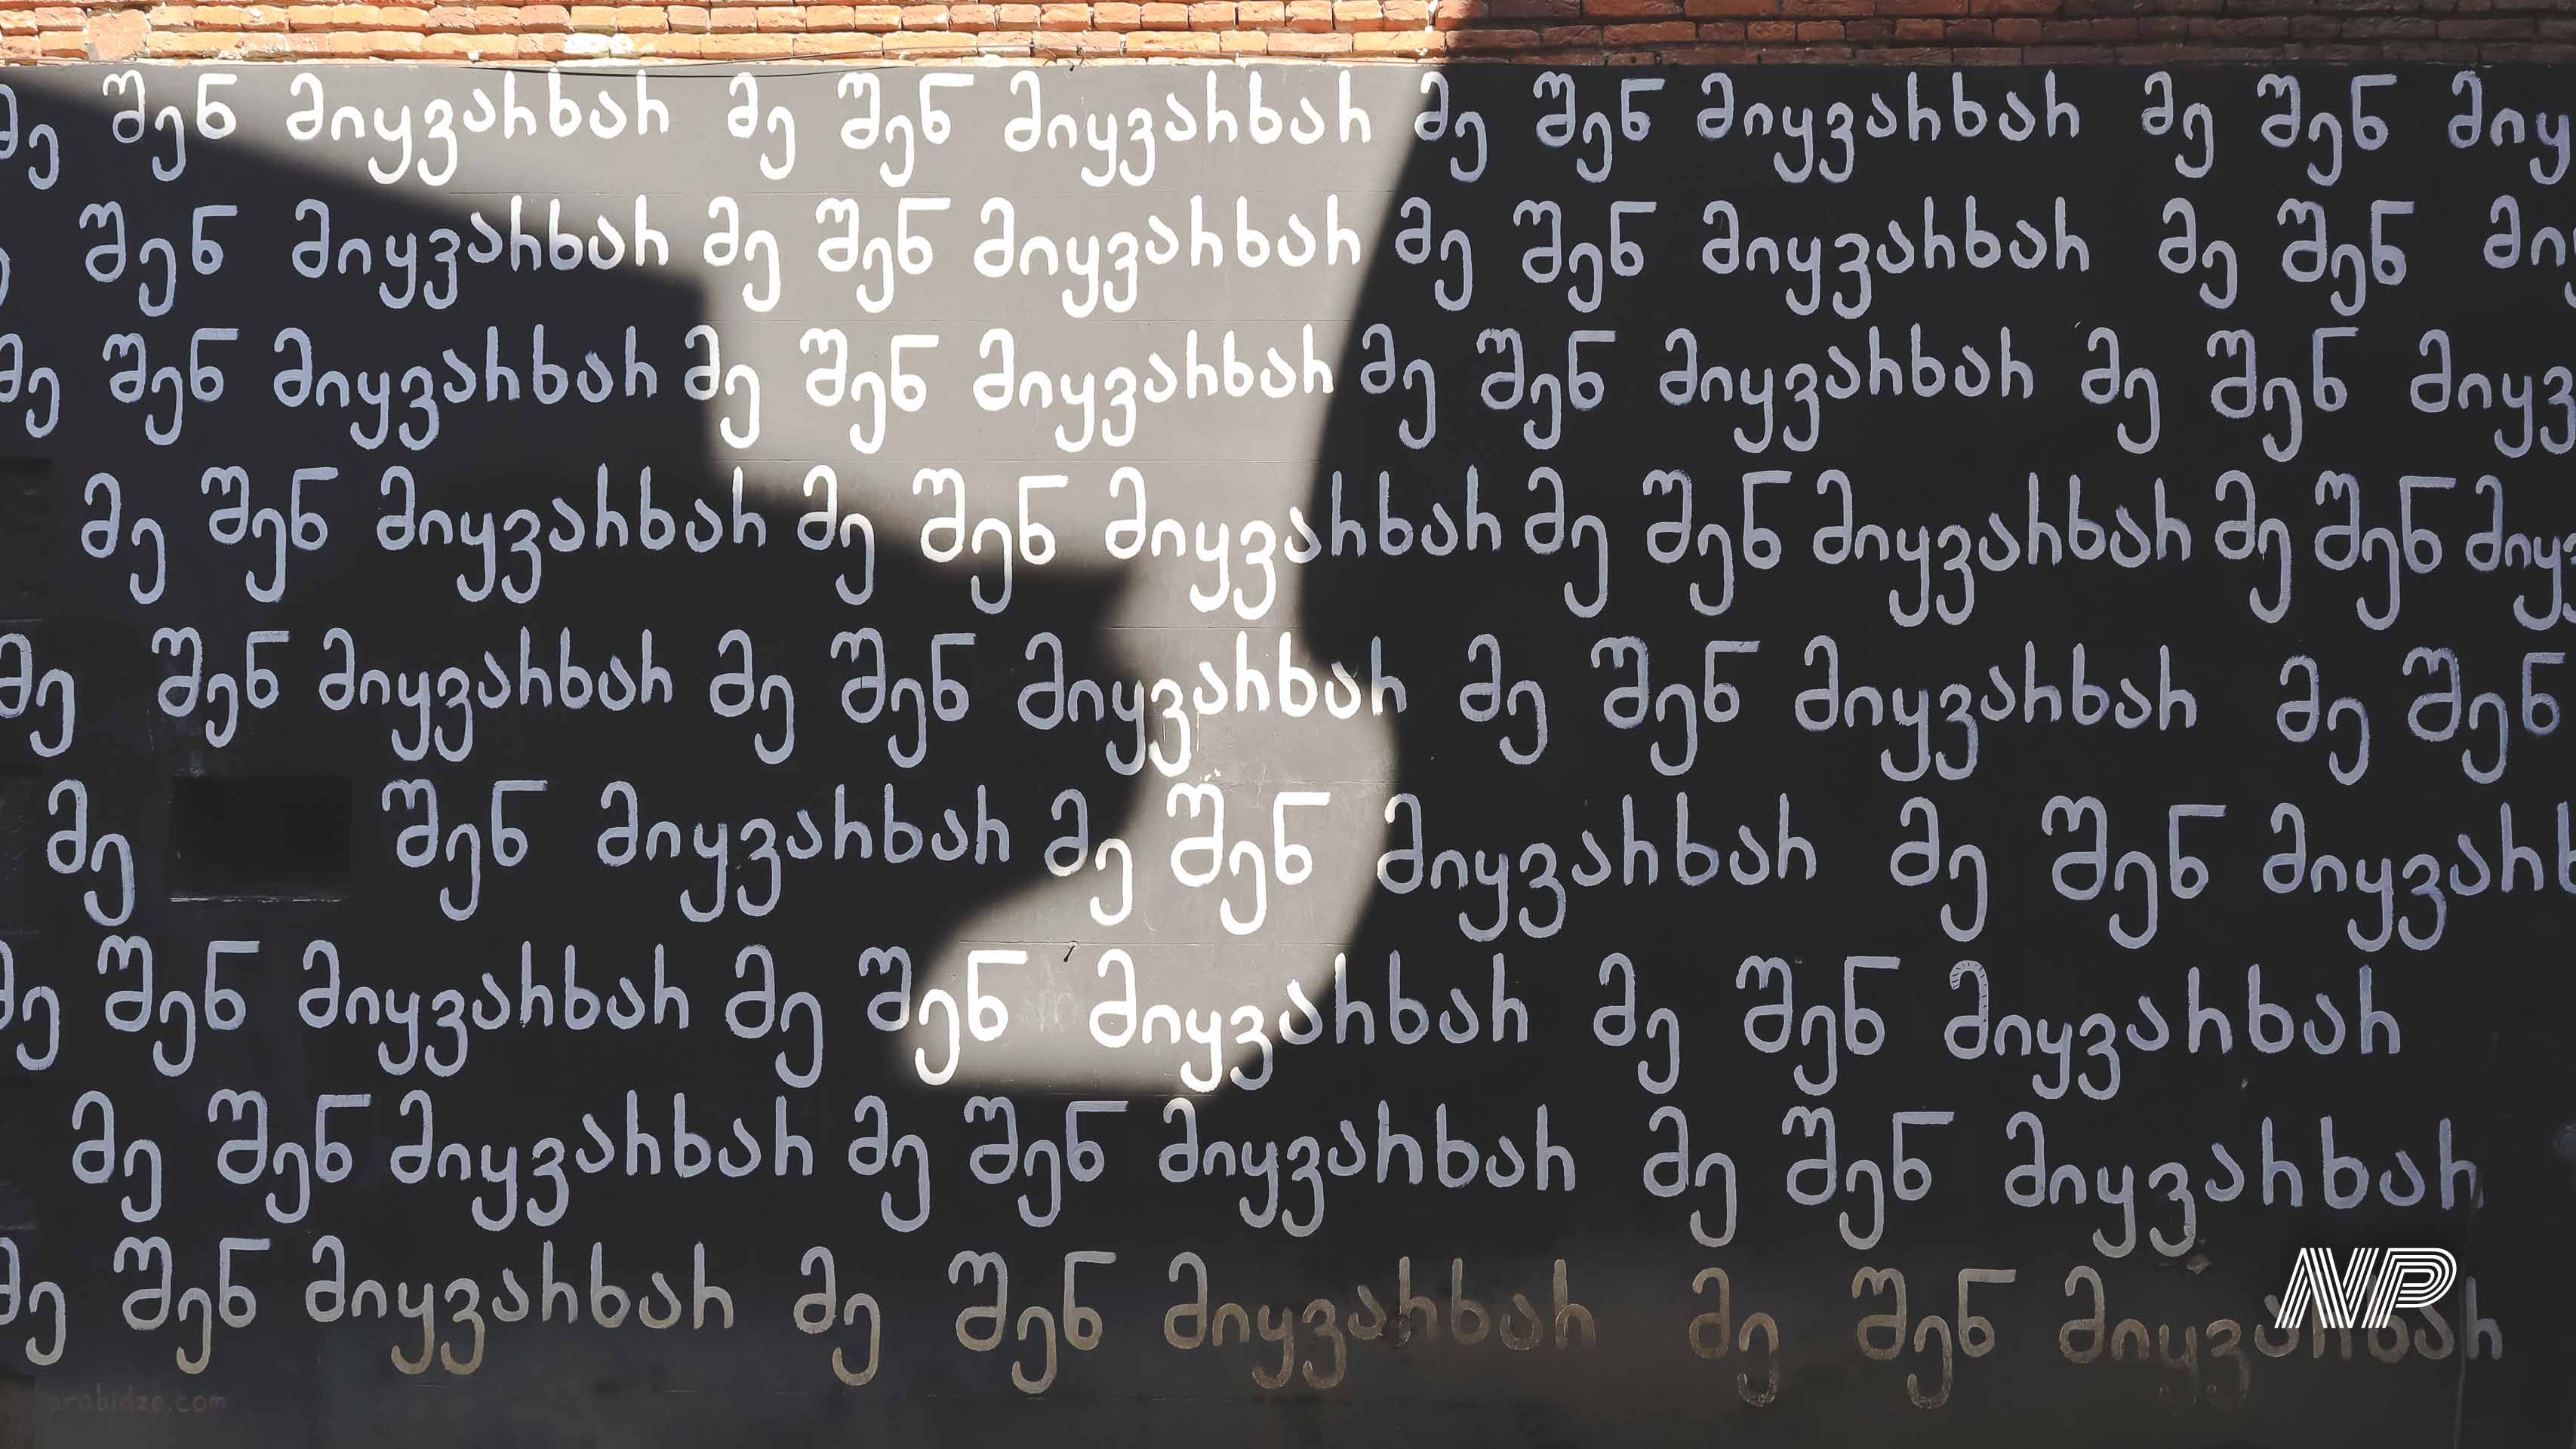 მე შენ მიყვარხარ მე შენ მიყვარხარ მე შენ მიყვარხარ მე შენ მიყ
შენ მიყვარხარ მე შენ მიყვარხარ მე შენ მიყვარხარ მე შენ მი
მე შენ მიყვარხარ მე შენ მიყვარხარ მე შენ მიყვარხარ მე შენ მიყვ
მე შენ მიყვარხარ მე შენ მიყვარხარ მე შენ მიყვარხარ მე შენ მიყვ
მე შენ მიყვარხარ მე შენ მიყვარხარ მე შენ მიყვარხარ მე შენ
მე შენ მიყვარხარ მე შენ მიყვარხარ მე შენ მიყვარხ
მე შენ მიყვარხარ მე შენ მიყვარხარ მე შენ მიყვარხარ
მე შენ მიყვარხარ მე შენ მიყვარხარ მე შენ მიყვარხარ
მე შენ მიყვარხარ მე შენ მიყვარხარ მე შენ მიყვარხარ
arabidze.com